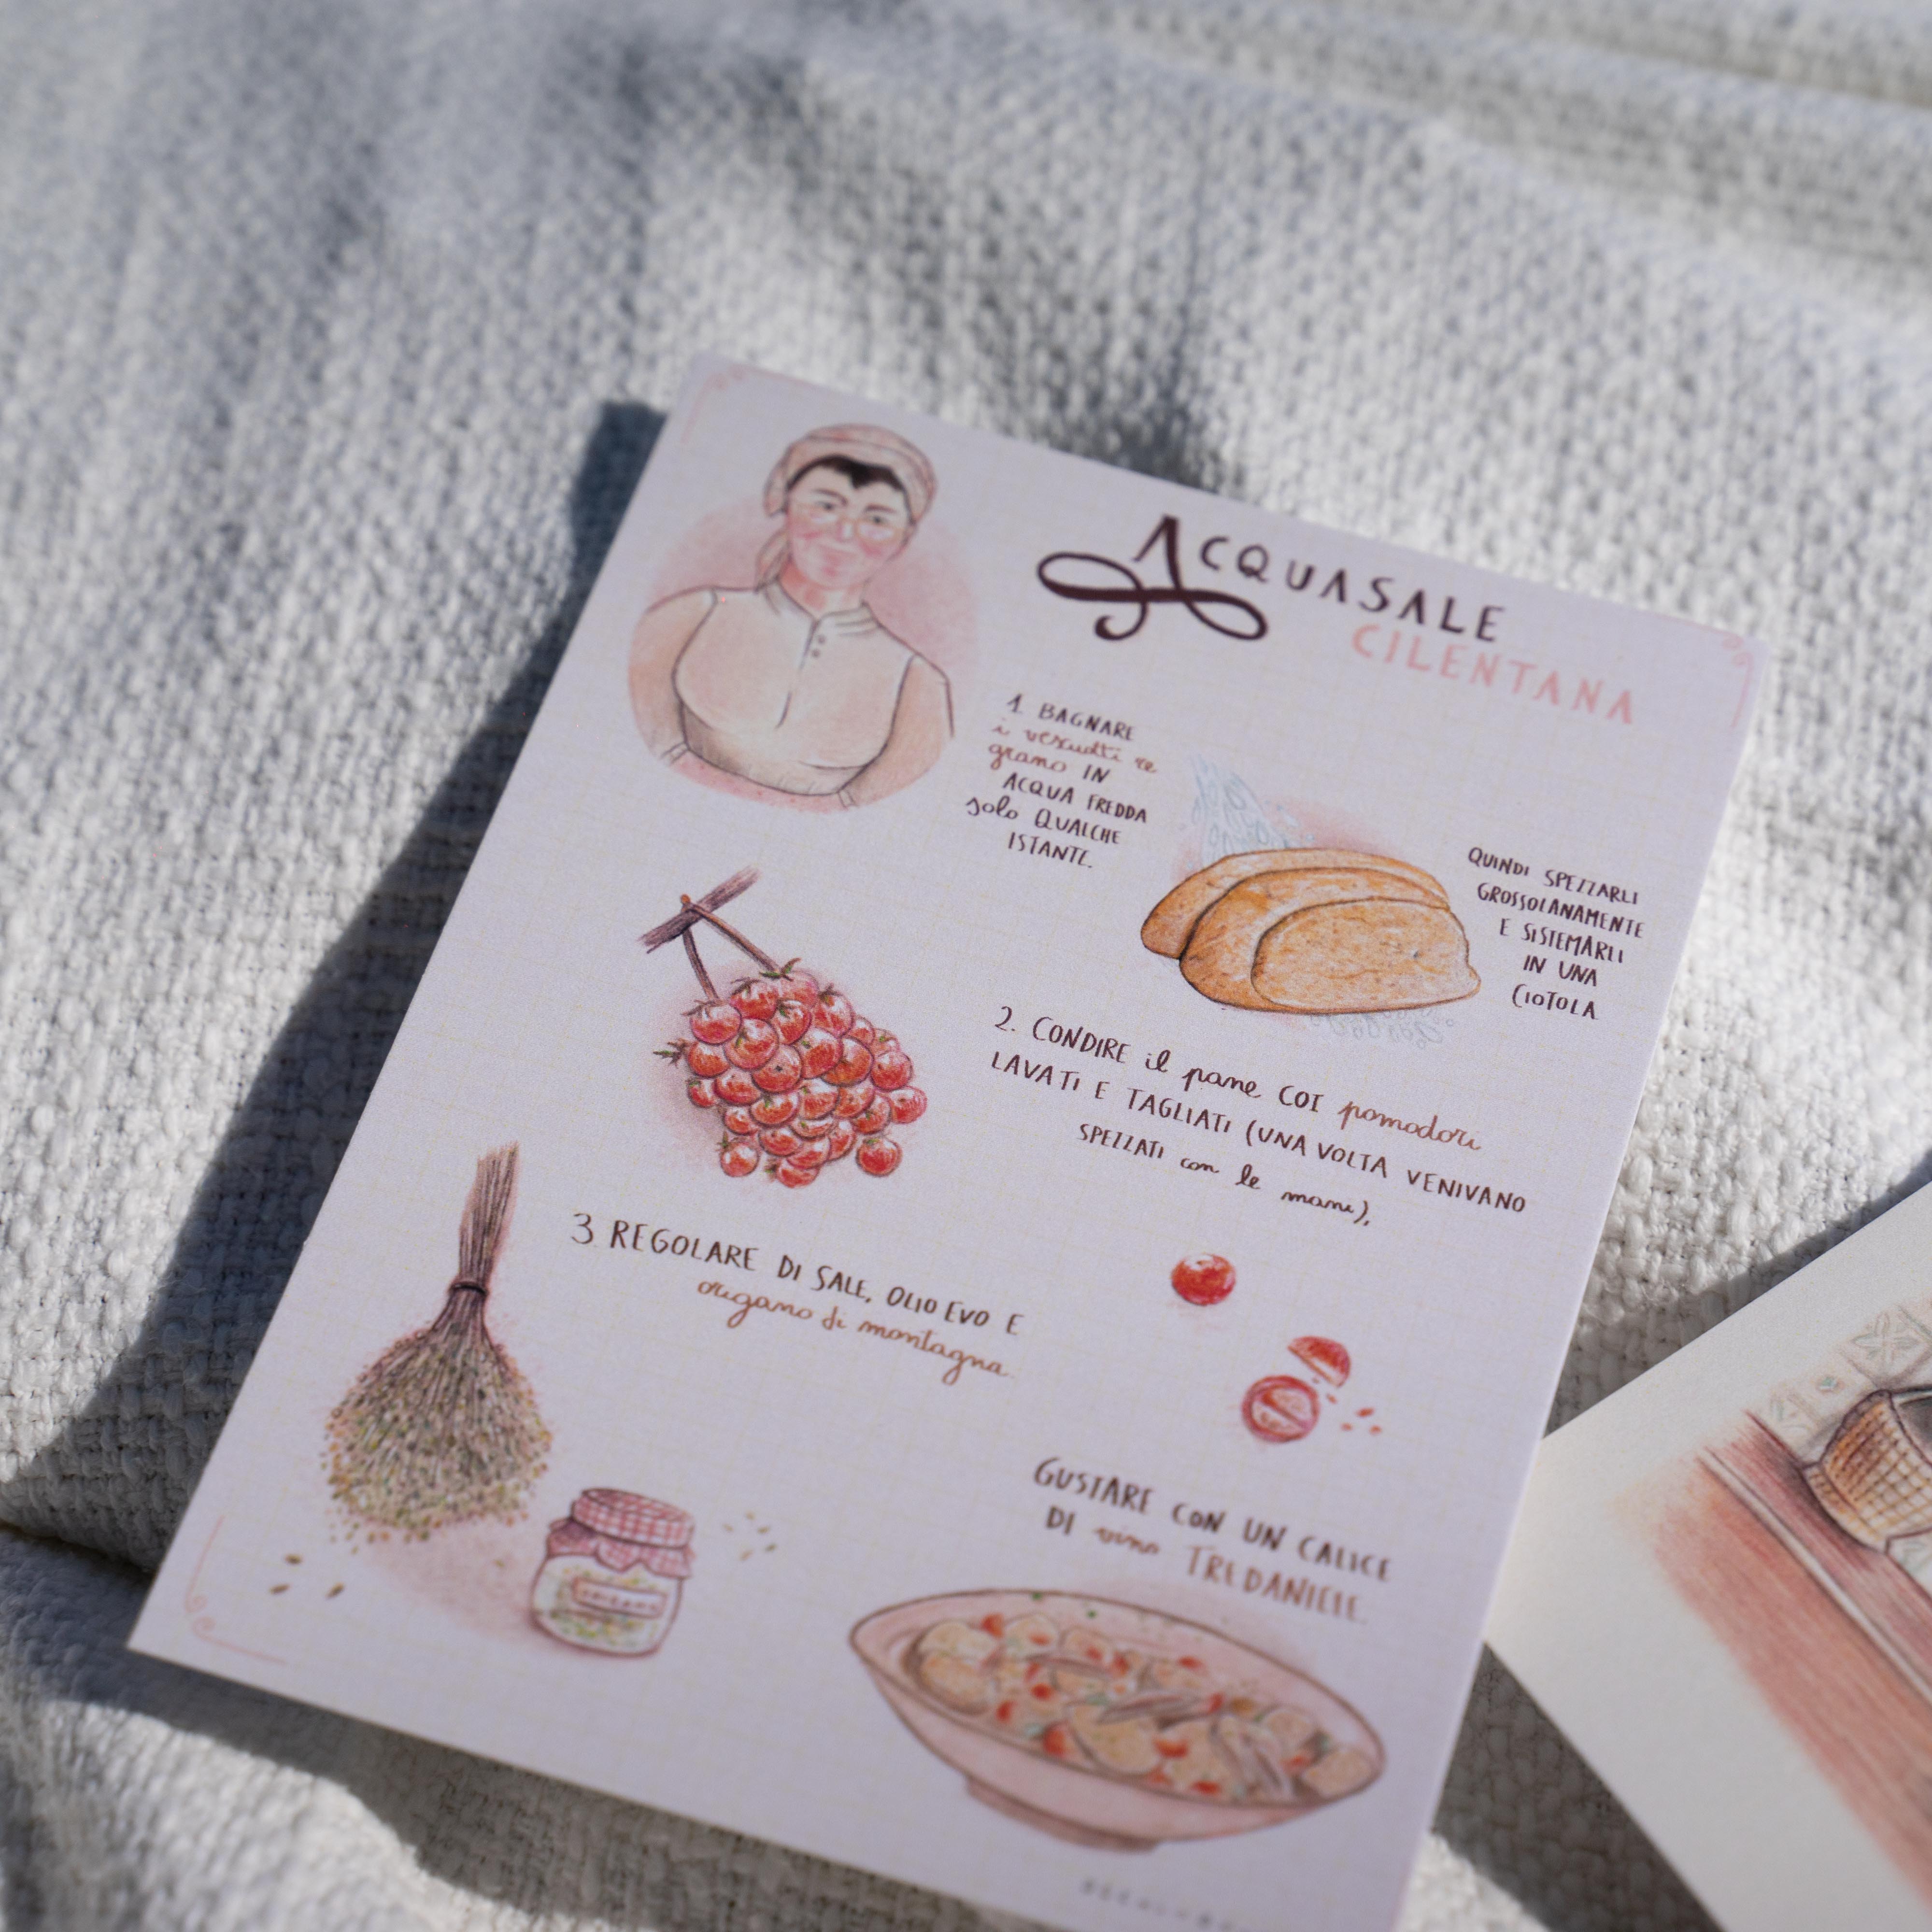 ACQUASALE
CILENTANA
1. BAGNARE
i vescuotti re
grano IN
ACQUA FREDDA
solo QUALCHE
ISTANTE.
QUINDI SPEZZARLI
GROSSOLANAMENTE
E SISTEMARLI
IN UNA
CIOTOLA
2. CONDIRE il pane COI pomodori
LAVATI E TAGLIATI (UNA VOLTA VENIVANO
SPEZZATI con le mani),
3 REGOLARE DI SALE, OLIO EVO E
origano di montagna.
GUSTARE CON UN CALICE
DI vino TREDANIELE.